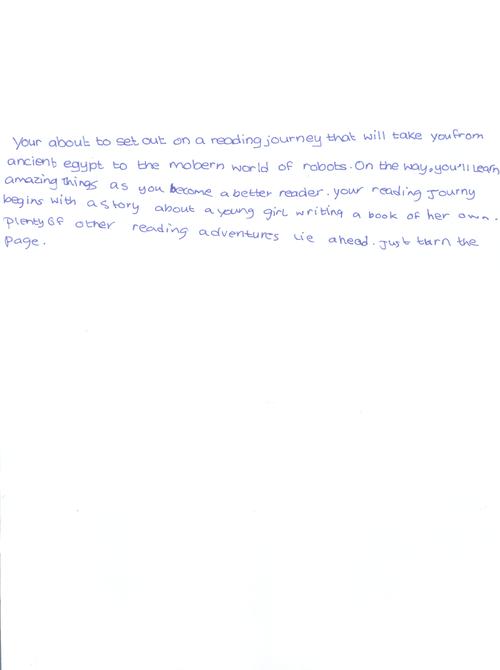 Your about to set out on a reading journey that will take you from
ancient egypt to the mobern world of robots. On the way, you'll learn
amazing things as you become a better reader. your reading Journy
begins with a story about a young girl writing a book of her own.
Plenty of other reading adventures lie ahead. Just turn the
Page.